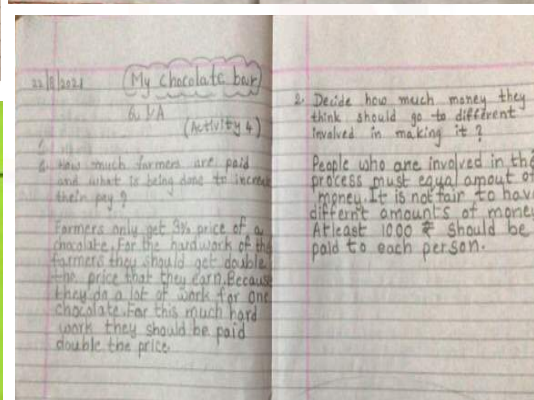 22/8/2021
My chocolate bar
(Activity 4)
how much farmers are paid
and what is being done to increase
their pay ?
Farmers only get 3% price of a
chocolate. For the hardwork of the
farmers they should get double
the price that they earn. Because
they do a lot of work for one
chocolate. For this much hard
work they should be paid
double the price.
2. Decide how much money they
think should go to different
involved in making it ?
People who are involved in the
process must equal amout of
money. It is not fair to have
differnt amounts of money
Atleast 1000 ₹ should be
paid to each person.